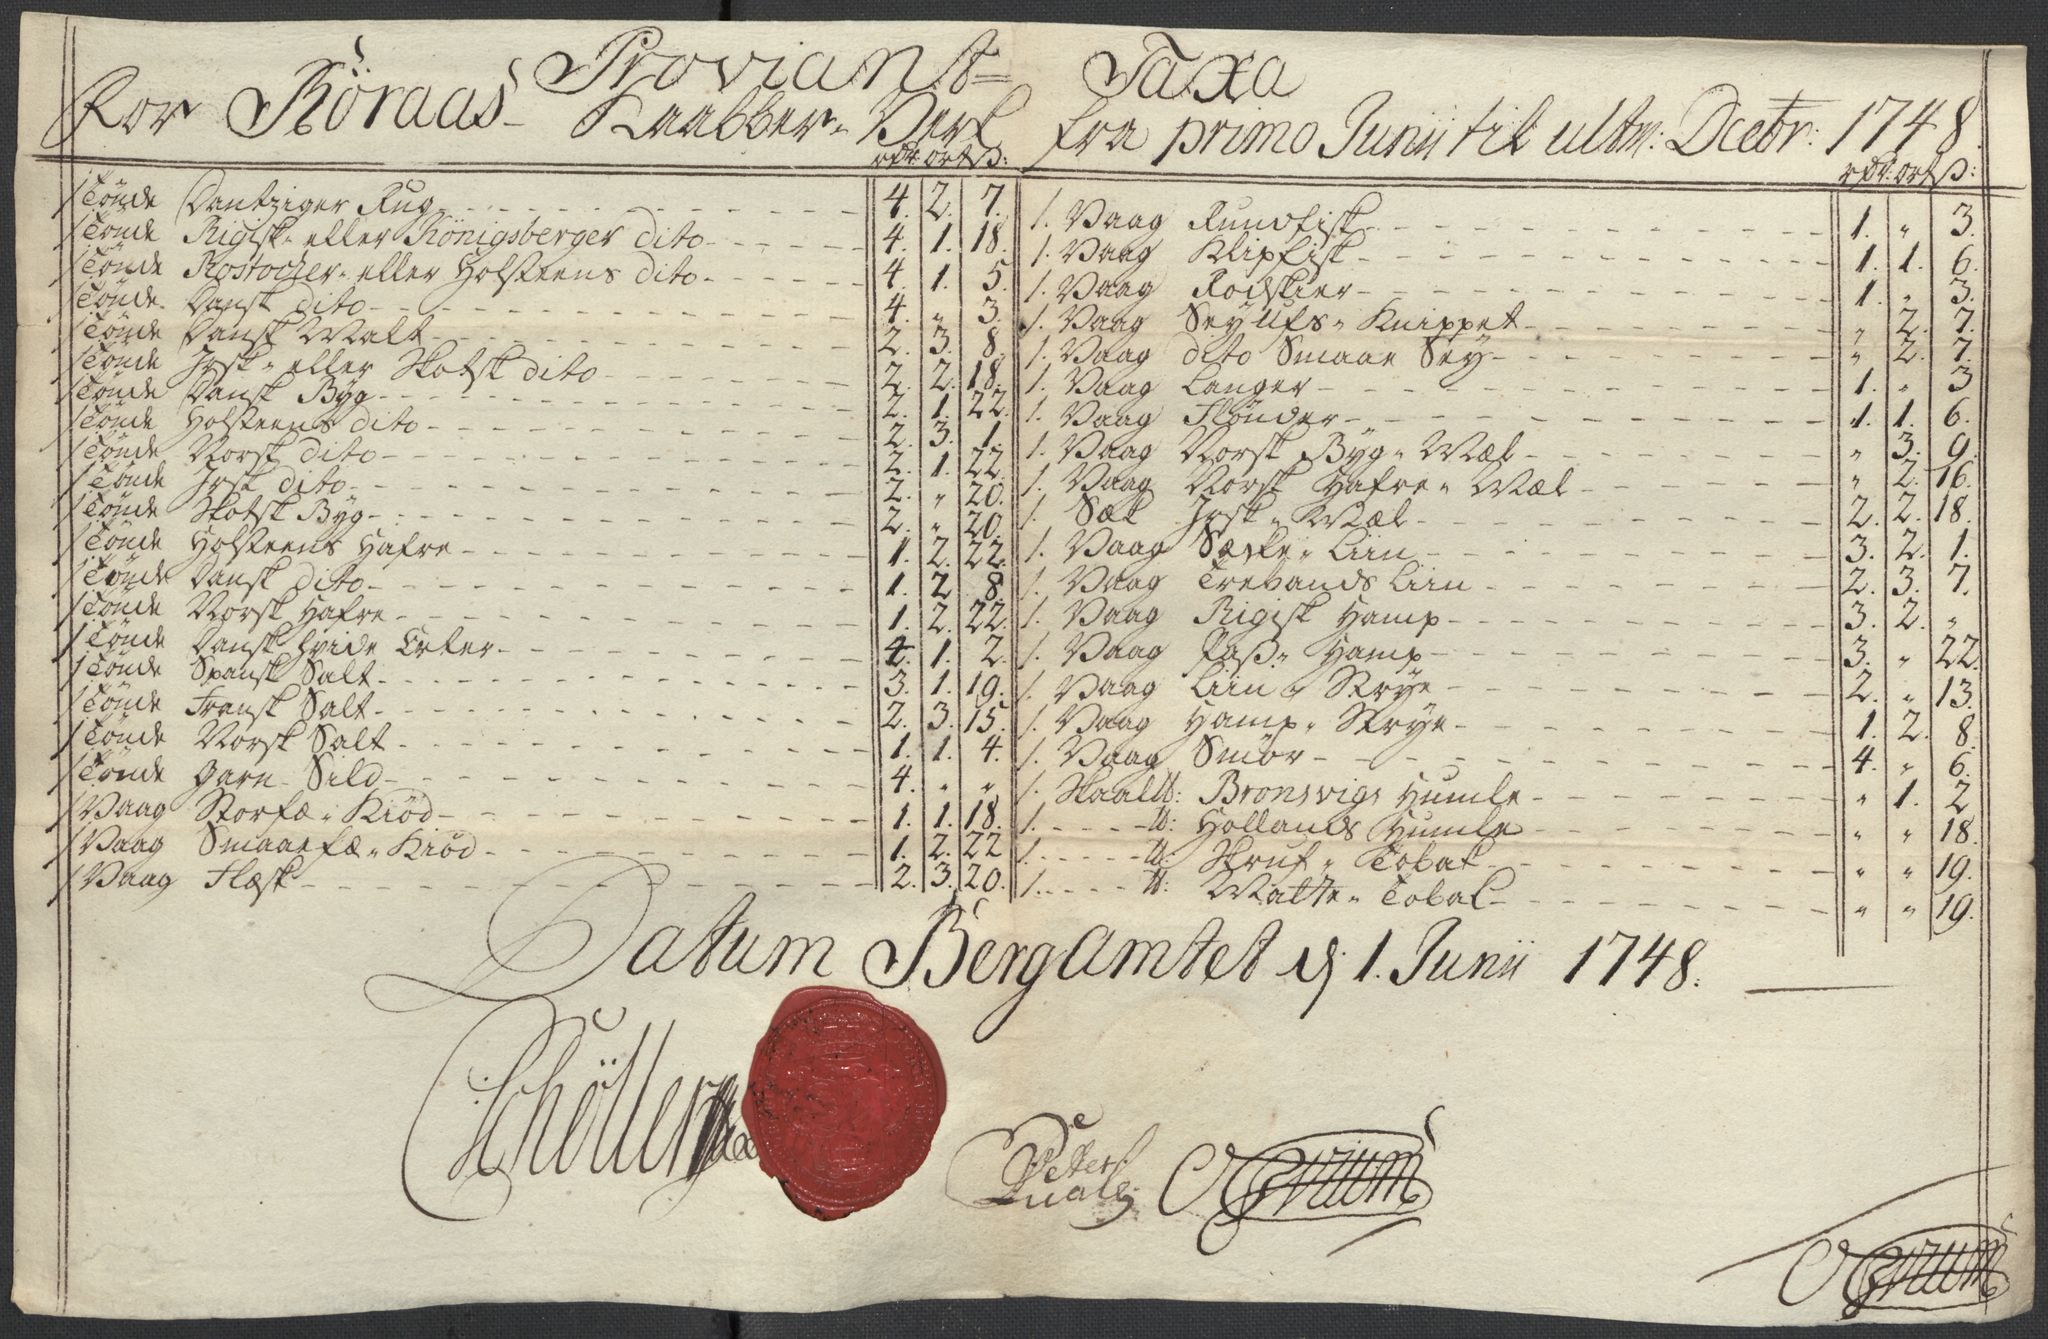 Proviant= Taxa
For Röraas Kaabber„ Verk fra primo Junii til ultm: Dcebr: 1748.
rdr: ort ß:
1 Tönde Dantziger Rug 4. 2. 7.
1 Tönde Rigisk„ eller Königsberger dito 4. 1. 18.
1 Tönde Rostocher„ eller Holsteens dito 4. 1. 5.
1 Tönde Dansk dito 4. „ 3.
1 Tönde Dansk Malt 2. 3. 8.
1 Tönde Jrsk„ eller Skotsk dito 2. 2. 18.
1 Tönde Dansk Byg 2. 1. 22.
1 Tönde Holsteens dito 2. 3. 1.
1 Tönde Norsk dito 2. 1. 22.
1 Tönde Jrsk dito 2. „ 20.
1 Tönde Skotsk Byg 2. „ 20.
1 Tönde Holsteens Hafre 1. 2. 22.
1 Tönde Dansk dito 1. 2. 8.
1 Tönde Norsk Hafre 1. 2. 22.
1 Tönde Dansk hvide Erter 4. 1. 2.
1 Tönde Spansk Salt 3. 1. 19.
1 Tönde Fransk Salt 2. 3. 15.
1 Tönde Norsk Salt 1. 1. 4.
1 Tönde Garn Sild 4. „ „
1 Vaag Storfæ„ Kiöd 1. 1. 18.
1 Vaag Smaaefæ„ Kiöd 1. 2. 22
1 Vaag Flæsk 2. 3. 20.
rdr: ort ß:
1. Vaag Rundfisk 1. „ 3.
1. Vaag Klipfisk 1. 1. 6.
1. Vaag Rodskier 1. „ 3.
1. Vaag Sey Ufs„ Knippet „ 2. 7.
1. Vaag dito Smaae Sey „ 2. 7.
1. Vaag Langer 1. „ 3
1. Vaag Flönder 1. 1. 6.
1. Vaag Norsk Byg„ Mæl „ 3. 9.
1. Vaag Norsk Hafre„ Mæl „ 2. 16.
1. Sæk Jrsk„ Mæl 2. 2. 18.
1. Vaag Særke„ Liin 3. 2. 1.
1. Vaag Trebands Liin 2. 3. 7.
1. Vaag Rigisk Hamp 3. 2. „
1. Vaag Paß„ Hamp 3. „ 22.
1. Vaag Liin„ Strye 2. „ 13.
1. Vaag Hamp„ Strye 1. 2. 8.
1. Vaag Smör 4. „ 6.
1. Skaal℔: Bronsvigs Humle „ 1. 2
1. ℔: Hollands Humle „ „ 18.
1. ℔: Skruf„ Tobak „ „ 19.
1. ℔: Matte„ Tobak „ „ 19.
Datum BergAmtet d: 1. Junii 1748.
Schöller
Peter